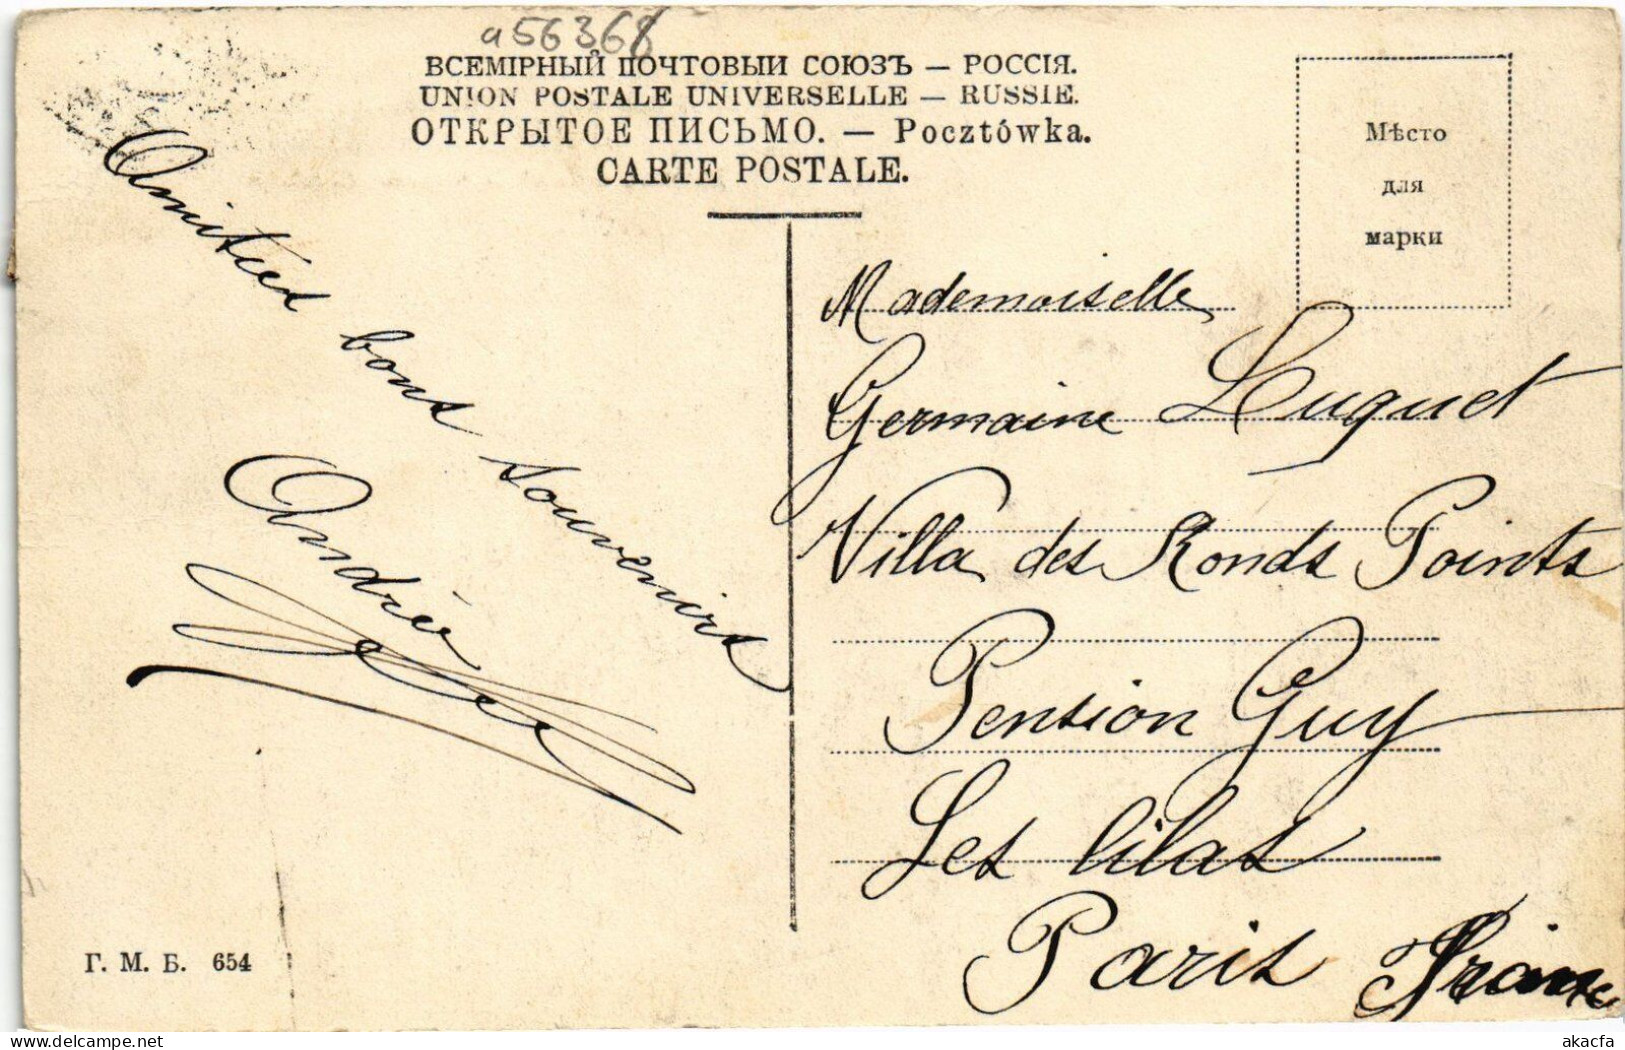 a56368
ВСЕМІРНЫЙ ПОЧТОВЫЙ СОЮЗЪ — РОССІЯ.
UNION POSTALE UNIVERSELLE — RUSSIE.
ОТКРЫТОЕ ПИСЬМО. — Pocztówka.
CARTE POSTALE.
Мѣсто
для
марки
Amitiés bons souvenirs
Andrée
Mademoiselle
Germaine Luquet
Villa des Ronds Points
Pension Guy
Les lilas
Paris France
Г. М. Б. 654
akacfa